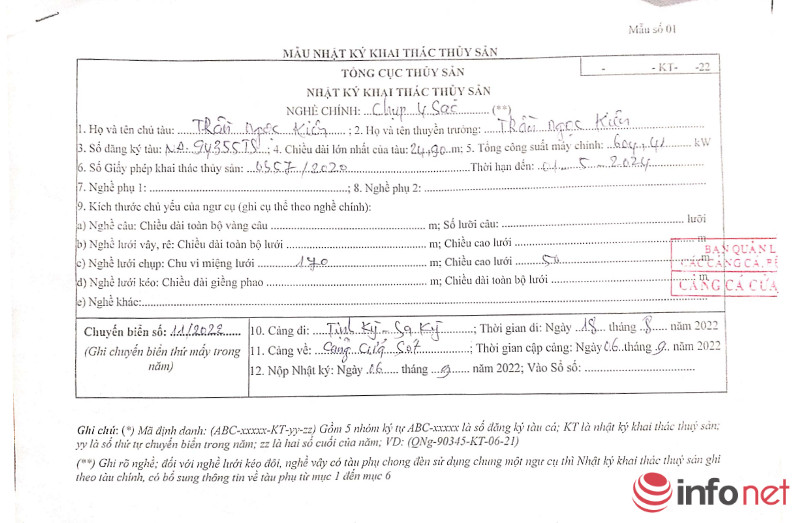 Mẫu số 01
MẪU NHẬT KÝ KHAI THÁC THỦY SẢN
TỔNG CỤC THỦY SẢN
- - KT- -22
NHẬT KÝ KHAI THÁC THỦY SẢN
NGHỀ CHÍNH: Chụp 4 Sào (**)
1. Họ và tên chủ tàu: Trần Ngọc Kiên; 2. Họ và tên thuyền trưởng: Trần Ngọc Kiên
3. Số đăng ký tàu: NA. 94355TS; 4. Chiều dài lớn nhất của tàu: 24,90 m; 5. Tổng công suất máy chính: 604,41 kW
6. Số Giấy phép khai thác thủy sản: 0357/2020 Thời hạn đến: 01-5-2024
7. Nghề phụ 1: ; 8. Nghề phụ 2:
9. Kích thước chủ yếu của ngư cụ (ghi cụ thể theo nghề chính):
a) Nghề câu: Chiều dài toàn bộ vàng câu m; Số lưỡi câu: lưỡi
b) Nghề lưới vây, rê: Chiều dài toàn bộ lưới m; Chiều cao lưới m
c) Nghề lưới chụp: Chu vi miệng lưới 170 m; Chiều cao lưới 50
d) Nghề lưới kéo: Chiều dài giềng phao m; Chiều dài toàn bộ lưới : m
e) Nghề khác:
BAN QUẢN L
CÁC CẢNG CÁ, BẾ
CẢNG CÁ CỬA
Chuyến biển số: 11/2022
(Ghi chuyến biển thứ mấy trong
năm)
10. Cảng đi: Tịnh Kỳ - Sa Kỳ; Thời gian đi: Ngày 18 tháng 8 năm 2022
11. Cảng về: Cảng Cửa Sót; Thời gian cập cảng: Ngày 06 tháng 9 năm 2022
12. Nộp Nhật ký: Ngày 06 tháng 9 năm 2022; Vào Sổ số:
Ghi chú: (*) Mã định danh: (ABC-xxxxx-KT-yy-zz) Gồm 5 nhóm ký tự ABC-xxxxx là số đăng ký tàu cá; KT là nhật ký khai thác thuỷ sản;
yy là số thứ tự chuyến biển trong năm; zz là hai số cuối của năm; VD: (QNg-90345-KT-06-21)
(**) Ghi rõ nghề; đối với nghề lưới kéo đôi, nghề vây có tàu phụ chong đèn sử dụng chung một ngư cụ thì Nhật ký khai thác thuỷ sản ghi
theo tàu chính, có bổ sung thông tin về tàu phụ từ mục 1 đến mục 6
infonet